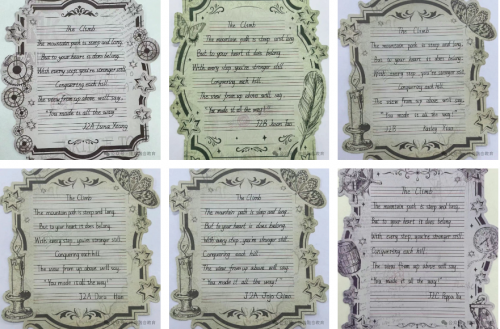 The Climb
The mountain path is steep and long,
But to your heart it does belong.
With every step, you're stronger still.
Conquering each hill.
The view from up above will say,
"You made it all the way!"
The Climb
The mountain path is steep and long
But to your heart it does belong.
With every step, you're stronger still
Conquering each hill.
The view from up above will say,
"You made it all the way!"
J2B
The Climb
The mountain path is steep and long,
But to your heart it does belong.
With every step, you're stronger still.
Conquering each hill.
The view from up above will say,
"You made it all the way!"
J2B
The Climb
The mountain path is steep and long,
But to your heart it does belong.
With every step, you're stronger still.
Conquering each hill.
The view from up above will say,
"You made it all the way!"
J2A
The Climb
The mountain path is steep and long,
But to your heart it does belong.
With every step, you're stronger still.
Conquering each hill.
The view from up above will say,
"You made it all the way!"
J2A
The Climb
The mountain path is steep and long,
But to your heart it does belong.
With every step, you're stronger still.
Conquering each hill.
The view from up above will say,
"You made it all the way!"